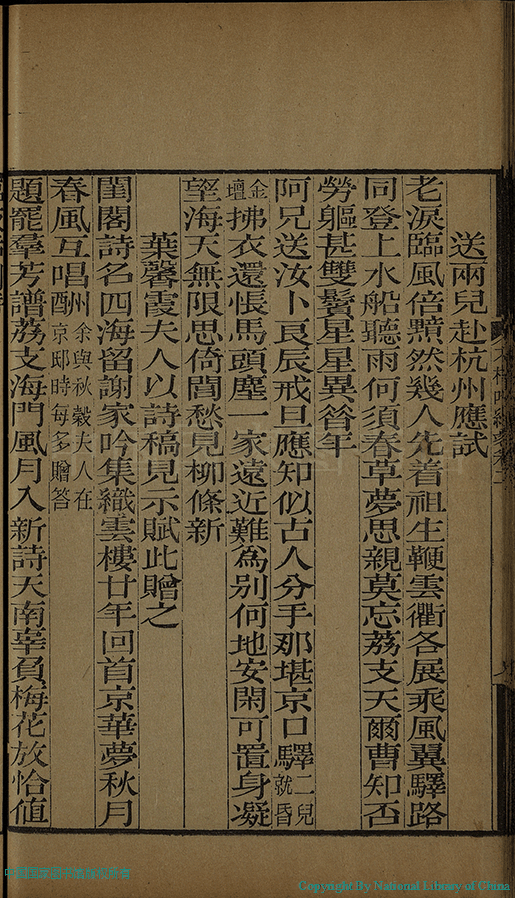 送兩兒赴杭州應試
老淚臨風倍黯然幾人先着祖生鞭雲衢各展乘風翼驛路
同登上水船聽雨何須春草夢思親莫忘荔支天爾曹知否
勞軀甚雙鬢星星異昝年
阿兄送汝卜良辰戒旦應知似古人分手那堪京口驛二兒就昏
金壇拂衣還悵馬頭塵一家遠近難為別何地安閑可置身凝
望海天無限思倚閭愁見柳條新
葉馨霞夫人以詩稿見示賦此贈之
閨閣詩名四海留謝家吟集織雲樓廿年回首京華夢秋月
春風互唱酬余與秋穀夫人在京邸時每多贈答
題罷羣芳譜荔支海門風月入新詩天南辜負梅花放恰值
Copyright By National Library of China